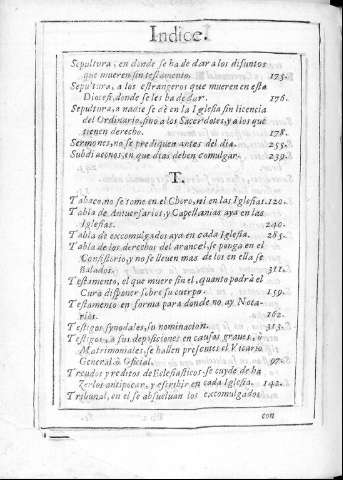 Indice.
Sepultura, en donde se ha de dar a los difuntos
que mueren sin testamento. 175.
Sepultura, a los estrangeros que mueren en esta
Diocesi, donde se les ha de dar. 176.
Sepultura, a nadie se dè en la Iglesia sin licencia
del Ordinario, sino a los Sacerdotes, y a los que
tienen derecho. 178.
Sermones, no se prediquen antes del dia. 255.
Subdiaconos, en que dias deben comulgar. 239.
T.
Tabaco, no se tome en el Choro, ni en las Iglesias. 120.
Tabla de Aniuersarios, y Capellanias aya en las
Iglesias. 240.
Tabla de excomulgados aya en cada Iglesia. 285.
Tabla de los derechos del arancel, se ponga en el
Consistorio, y no se lleuen mas de los en ella se
ñalados. 311.
Testamento, el que muere sin el, quanto podrà el
Cura disponer sobre su cuerpo. 159.
Testamento en forma para donde no ay Nota-
rios. 162.
Testigos synodales, su nominacion. 315.
Testigos, a sus deposiciones en causas graues, ò
Matrimoniales, se hallen presentes el Vicario
General, ò Oficial. 97.
Treudos y reditos de Eclesiasticos. se cuyde de ha
zerlos antipocar, y escribir en cada Iglesia. 142.
Tribunal, en el se absueluan los excomulgados
con